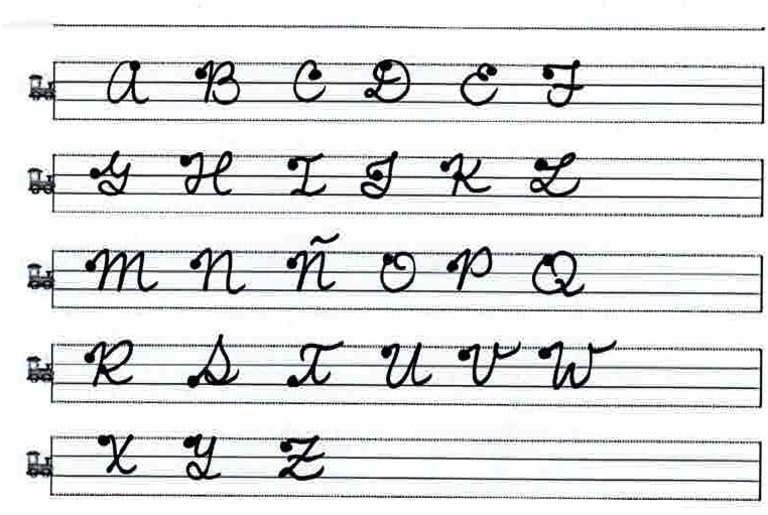 A B C D E F
G H I J K L
M N Ñ O P Q
R S T U V W
X Y Z